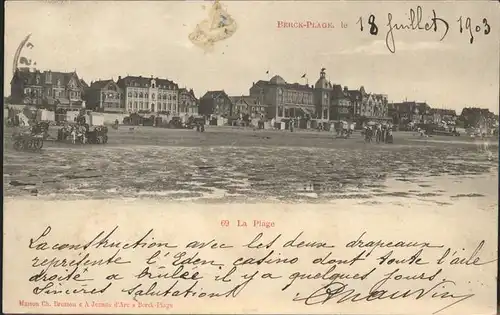 BERCK-PLAGE. le 18 Juillet 1903
69 La Plage
La construction avec les deux drapeaux
représente l'Eden casino dont toute l'aile
droite a brulée il y a quelques jours.
Sincères salutations
Chauvin
Maison Ch. Bruneau « A Jeanne d'Arc » Berck-Plage